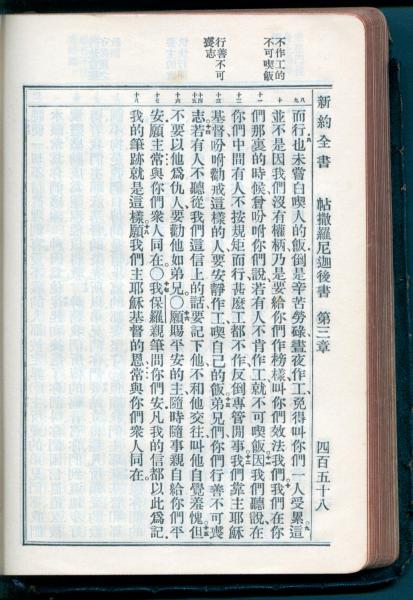 新約全書 帖撒羅尼迦後書 第三章 四百五十八
不作工的
不可喫飯
行善不可
喪志
而行也未嘗白喫人的飯、倒是辛苦勞碌、晝夜作工、免得叫你們一人受累。這
並不是因我們沒有權柄、乃是要給你們作榜樣、叫你們效法我們。我們在你
們那裏的時候、曾吩咐你們說、若有人不肯作工、就不可喫飯。因我們聽說、在
你們中間有人不按規矩而行、甚麼工都不作、反倒專管閒事。我們靠主耶穌
基督、吩咐勸戒這樣的人、要安靜作工、喫自己的飯。弟兄們、你們行善不可喪
志。若有人不聽從我們這信上的話、要記下他、不和他交往、叫他自覺羞愧。但
不要以他為仇人、要勸他如弟兄。○願賜平安的主、隨時隨事親自給你們平
安。願主常與你們眾人同在。○我保羅親筆問你們安。凡我的信都以此為記。
我的筆跡就是這樣。願我們主耶穌基督的恩、常與你們眾人同在。